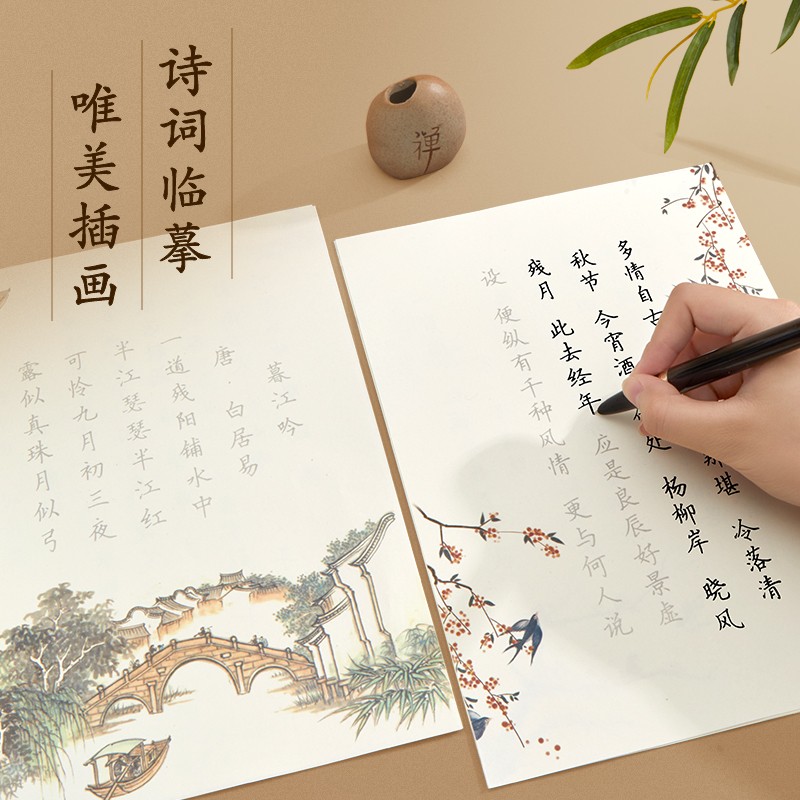 诗词临摹
唯美插画
禅
暮江吟
唐·白居易
一道残阳铺水中
半江瑟瑟半江红
可怜九月初三夜
露似真珠月似弓
多情自古 堪 冷落清
秋节 今宵酒 处 杨柳岸 晓风
残月 此去经年 应是良辰好景虚
设 便纵有千种风情 更与何人说